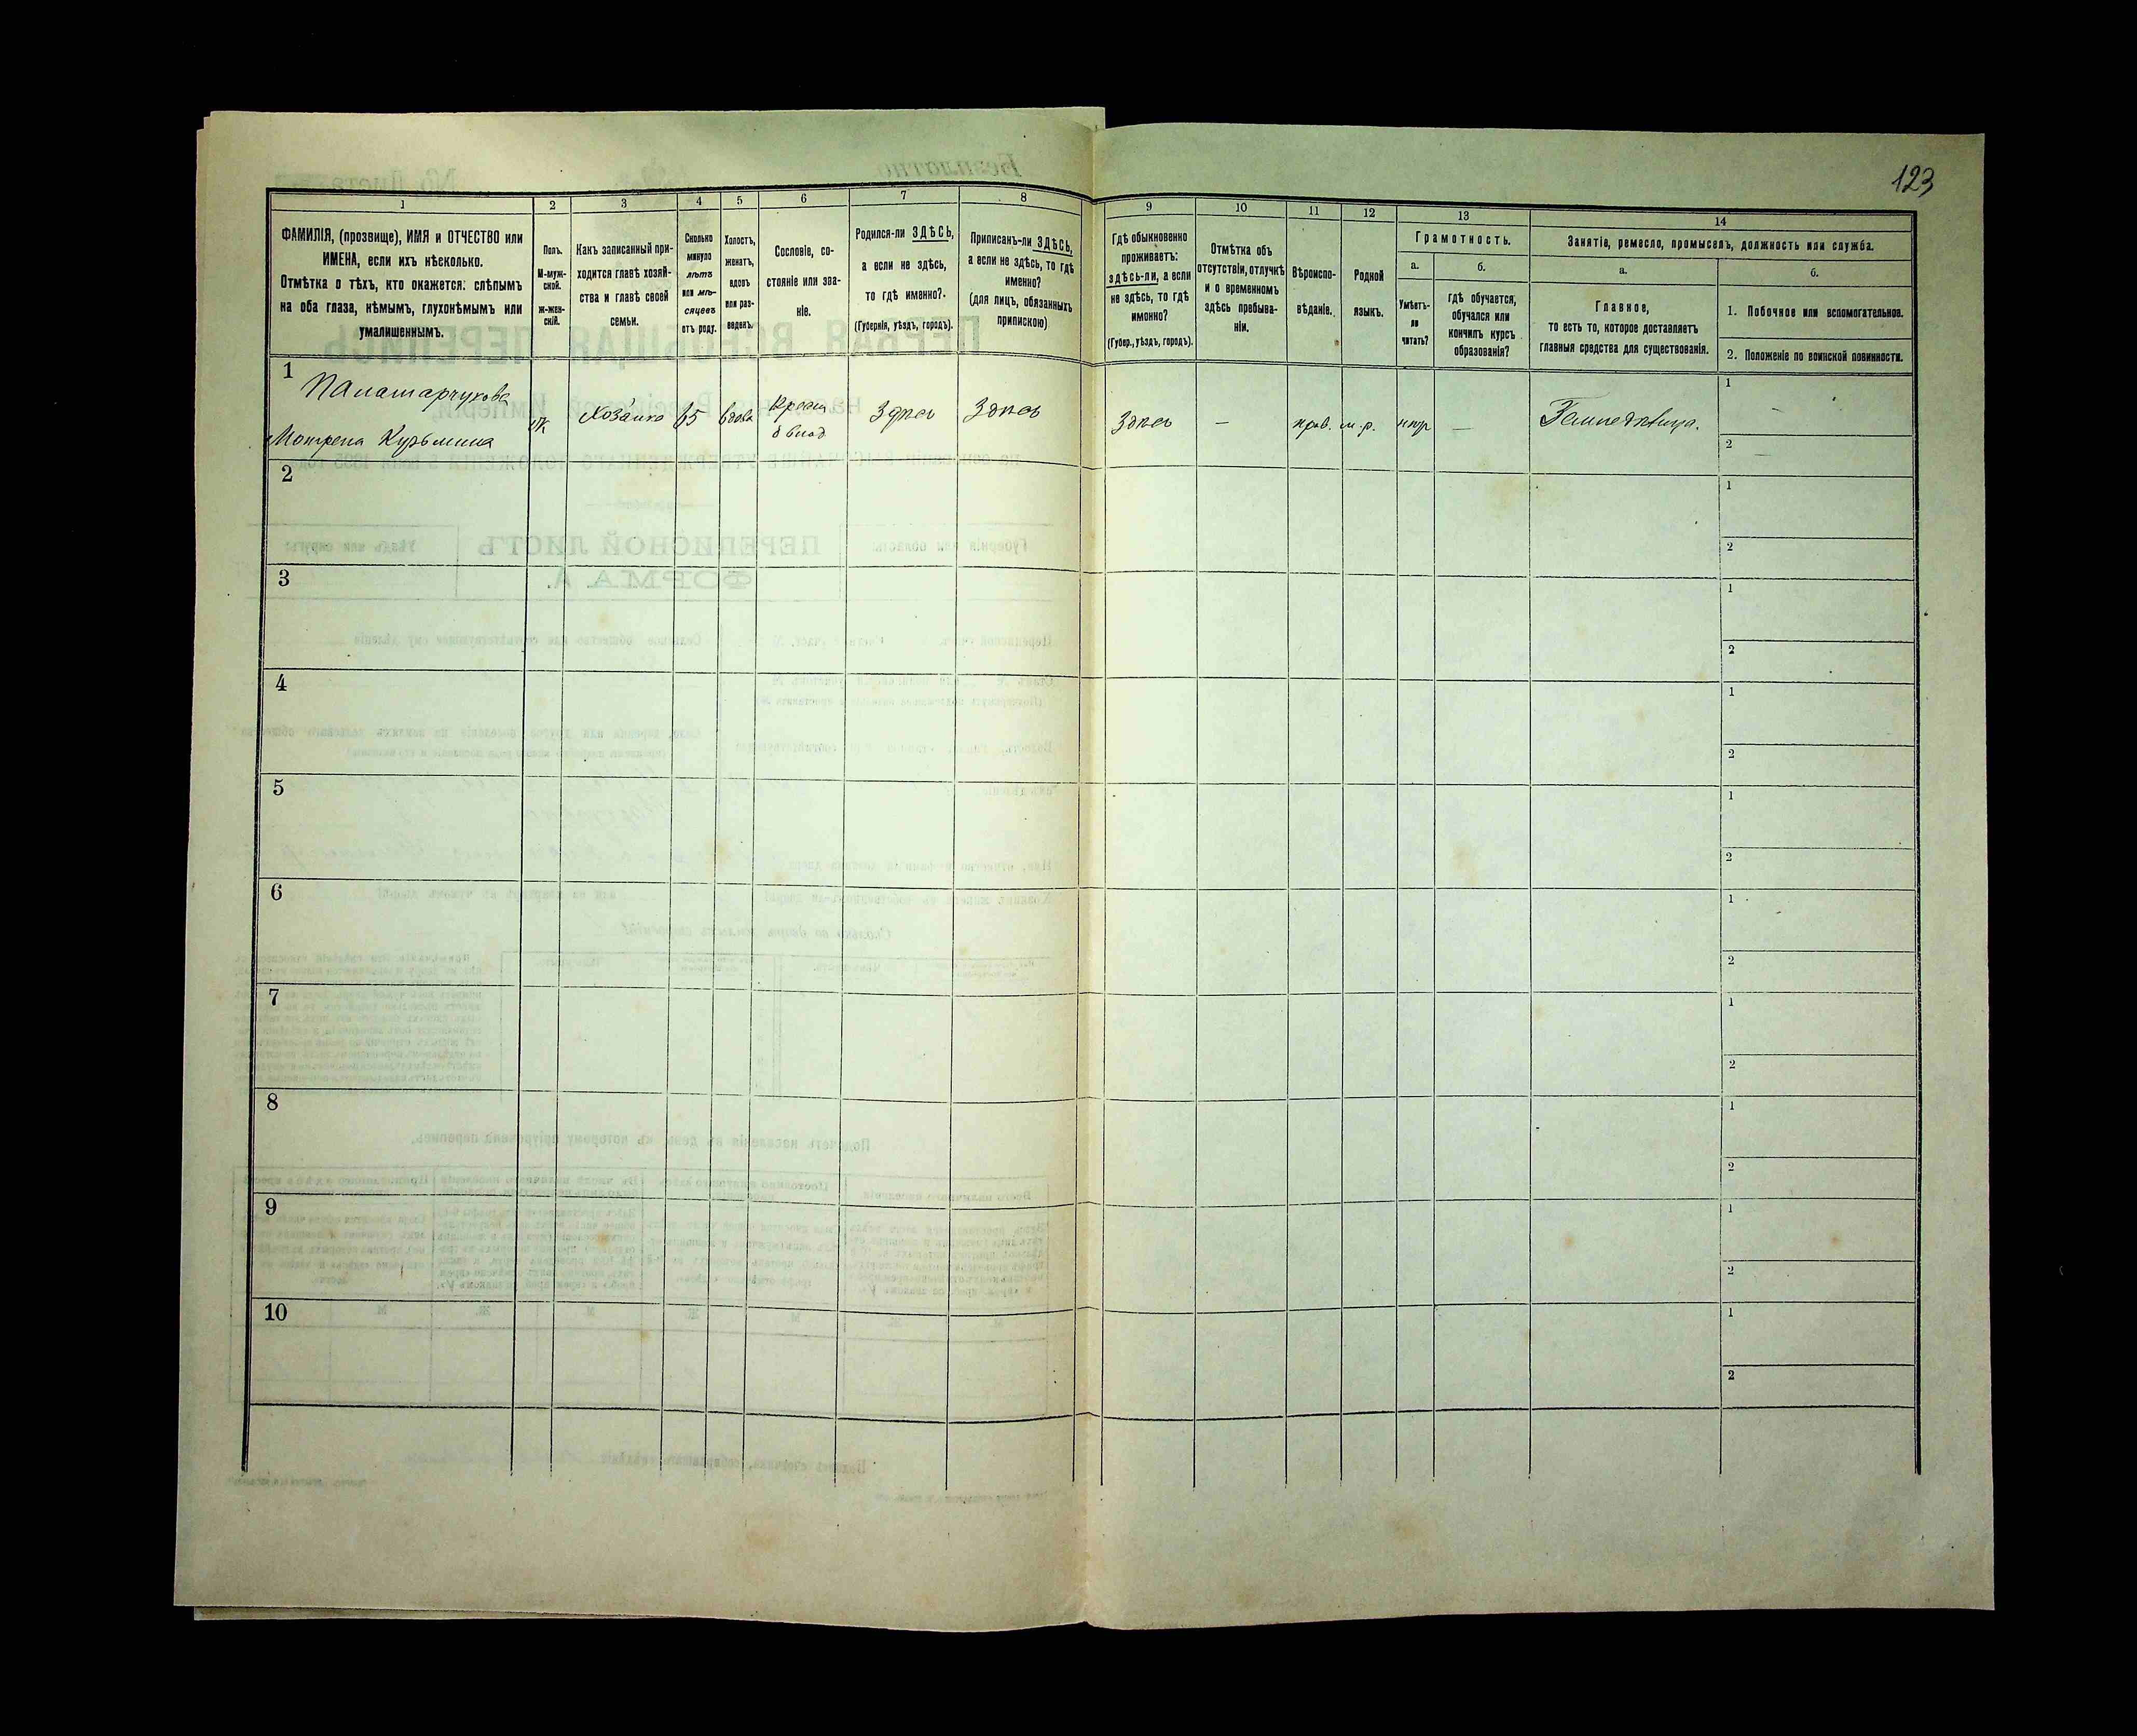 123
1
2
3
4
5
6
7
8
9
10
11
12
13
14
ФАМИЛІЯ, (прозвище), ИМЯ и ОТЧЕСТВО или
ИМЕНА, если ихъ нѣсколько.
Отмѣтка о тѣхъ, кто окажется: слѣпымъ
на оба глаза, нѣмымъ, глухонѣмымъ или
умалишеннымъ.
Полъ.
М-муж-
ской.
ж-жен-
скій.
Какъ записанный при-
ходится главѣ хозяй-
ства и главѣ своей
семьи.
Сколько
минуло
лѣтъ
или мѣ-
сяцевъ
отъ роду.
Холостъ,
женатъ,
вдовъ
или раз-
веденъ.
Сословіе, со-
стояніе или зва-
ніе.
Родился-ли ЗДѢСЬ,
а если не здѣсь,
то гдѣ именно?
(Губернія, уѣздъ, городъ).
Приписанъ-ли ЗДѢСЬ,
а если не здѣсь, то гдѣ
именно?
(для лицъ, обязанныхъ
припискою)
Гдѣ обыкновенно
проживаетъ:
здѣсь-ли, а если
не здѣсь, то гдѣ
именно?
(Губер., уѣздъ, городъ).
Отмѣтка объ
отсутствіи, отлучкѣ
и о временномъ
здѣсь пребыва-
ніи.
Вѣроиспо-
вѣданіе.
Родной
языкъ.
Грамотность.
а.
Умѣетъ-
ли
читать?
б.
гдѣ обучается,
обучался или
кончилъ курсъ
образованія?
Занятіе, ремесло, промыселъ, должность или служба.
а.
Главное,
то есть то, которое доставляетъ
главныя средства для существованія.
б.
1. Побочное или вспомогательное.
2. Положеніе по воинской повинности.
1
Паламарчукова
Мотрена Кузьмина
ж
Хозайка
65
вдова
Крест
б влад
Здѣсь
Здѣсь
Здѣсь
—
прав.
м.р.
нѣт
—
1
—
2
—
2
1
2
3
1
2
4
1
2
5
1
2
6
1
2
7
1
2
8
1
2
9
1
2
10
1
2